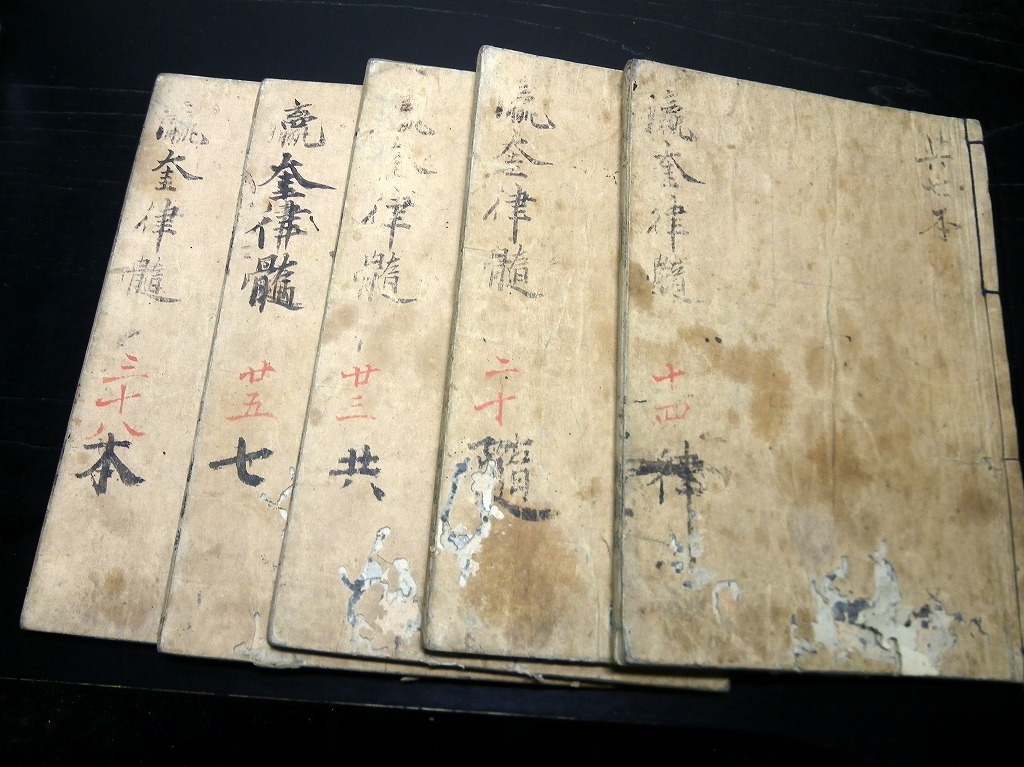 共七本
瀛奎律髓
十四
律
瀛奎律髓
二十
髓
瀛奎律髓
廿三
共
瀛奎律髓
廿五
七
瀛奎律髓
三十八
本